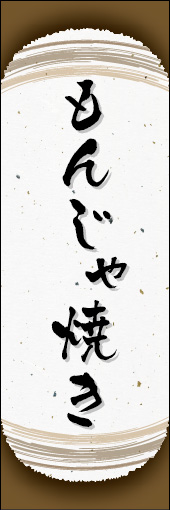 もんじゃ焼き